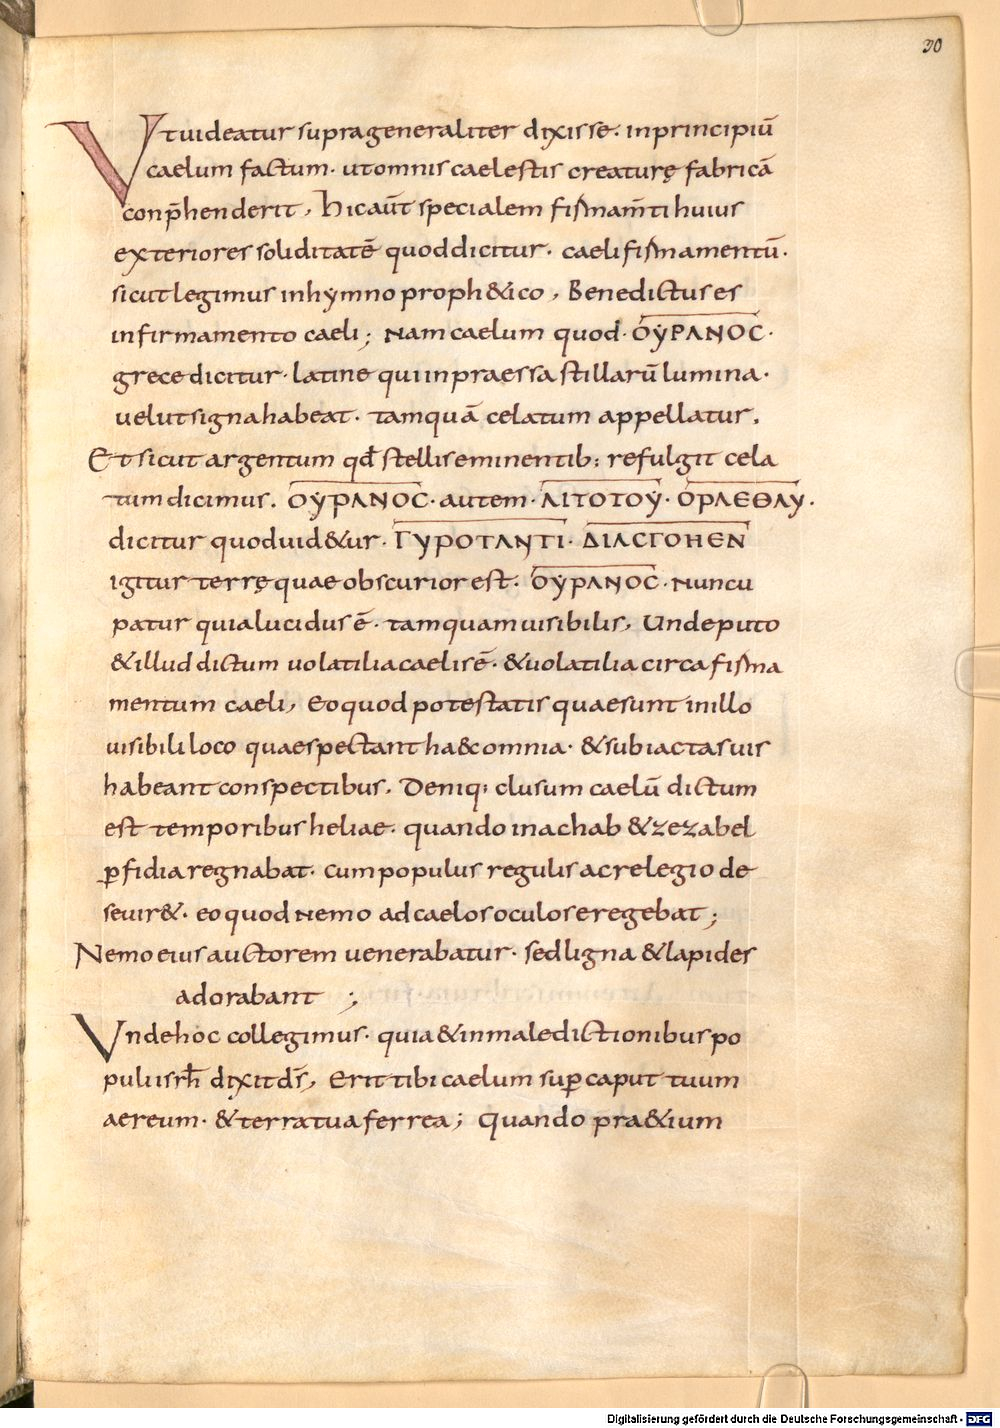 30
Vt uideatur supra generaliter dixisse· in principiū
caelum factum· ut omnis caelestis creaturę fabricā
conp̄henderit, hic aūt specialem firmam̄ti huius
exteriores soliditatē quod dicitur· caeli firmamentū·
sicut legimus in hymno proph&ico, Benedictus es
in firmamento caeli; Nam caelum quod· ΟΥΡΑΝΟC·
grece dicitur· latine qui inpraessa stillarū lumina·
uelut signa habeat· tamquā celatum appellatur.
Et sicut argentum qđ stellis eminentib: refulgit cela
tum dicimus. ΟΥΡΑΝΟC· autem· ΑΙΤΟΤΟΥ· ΟΡΑΕΘΑΥ·
dicitur quod uid&ur· ΓΥΡΟΤΑΝΤΙ· ΔΙΑCΓΟΗΕΝ
igitur terrę quae obscurior est· ΟΥΡΑΝΟC· Nuncu
patur quia lucidus ē· tamquam uisibilis, Unde puto
& illud dictum uolatilia caeli sē· & uolatilia circa firma
mentum caeli, Eo quod potestatis quae sunt in illo
uisibili loco quae spectant haec omnia· & subiacta suis
habeant conspectibus. Deniq; clusum caelū dictum
est temporibus heliae· quando in achab & zezabel
ꝑfidia regnabat· cum populus regulis ac relegio de
seuir&· eo quod Nemo ad caelos oculos eregebat;
Nemo eius auctorem uenerabatur· sed ligna & lapides
adorabant ;
Vnde hoc collegimus· quia & in maledictionibus po
puli isrł dixit ds̄, Erit tibi caelum suꝑ caput tuum
aereum· & terra tua ferrea; Quando pra&ium
Digitalisierung gefördert durch die Deutsche Forschungsgemeinschaft - DFG